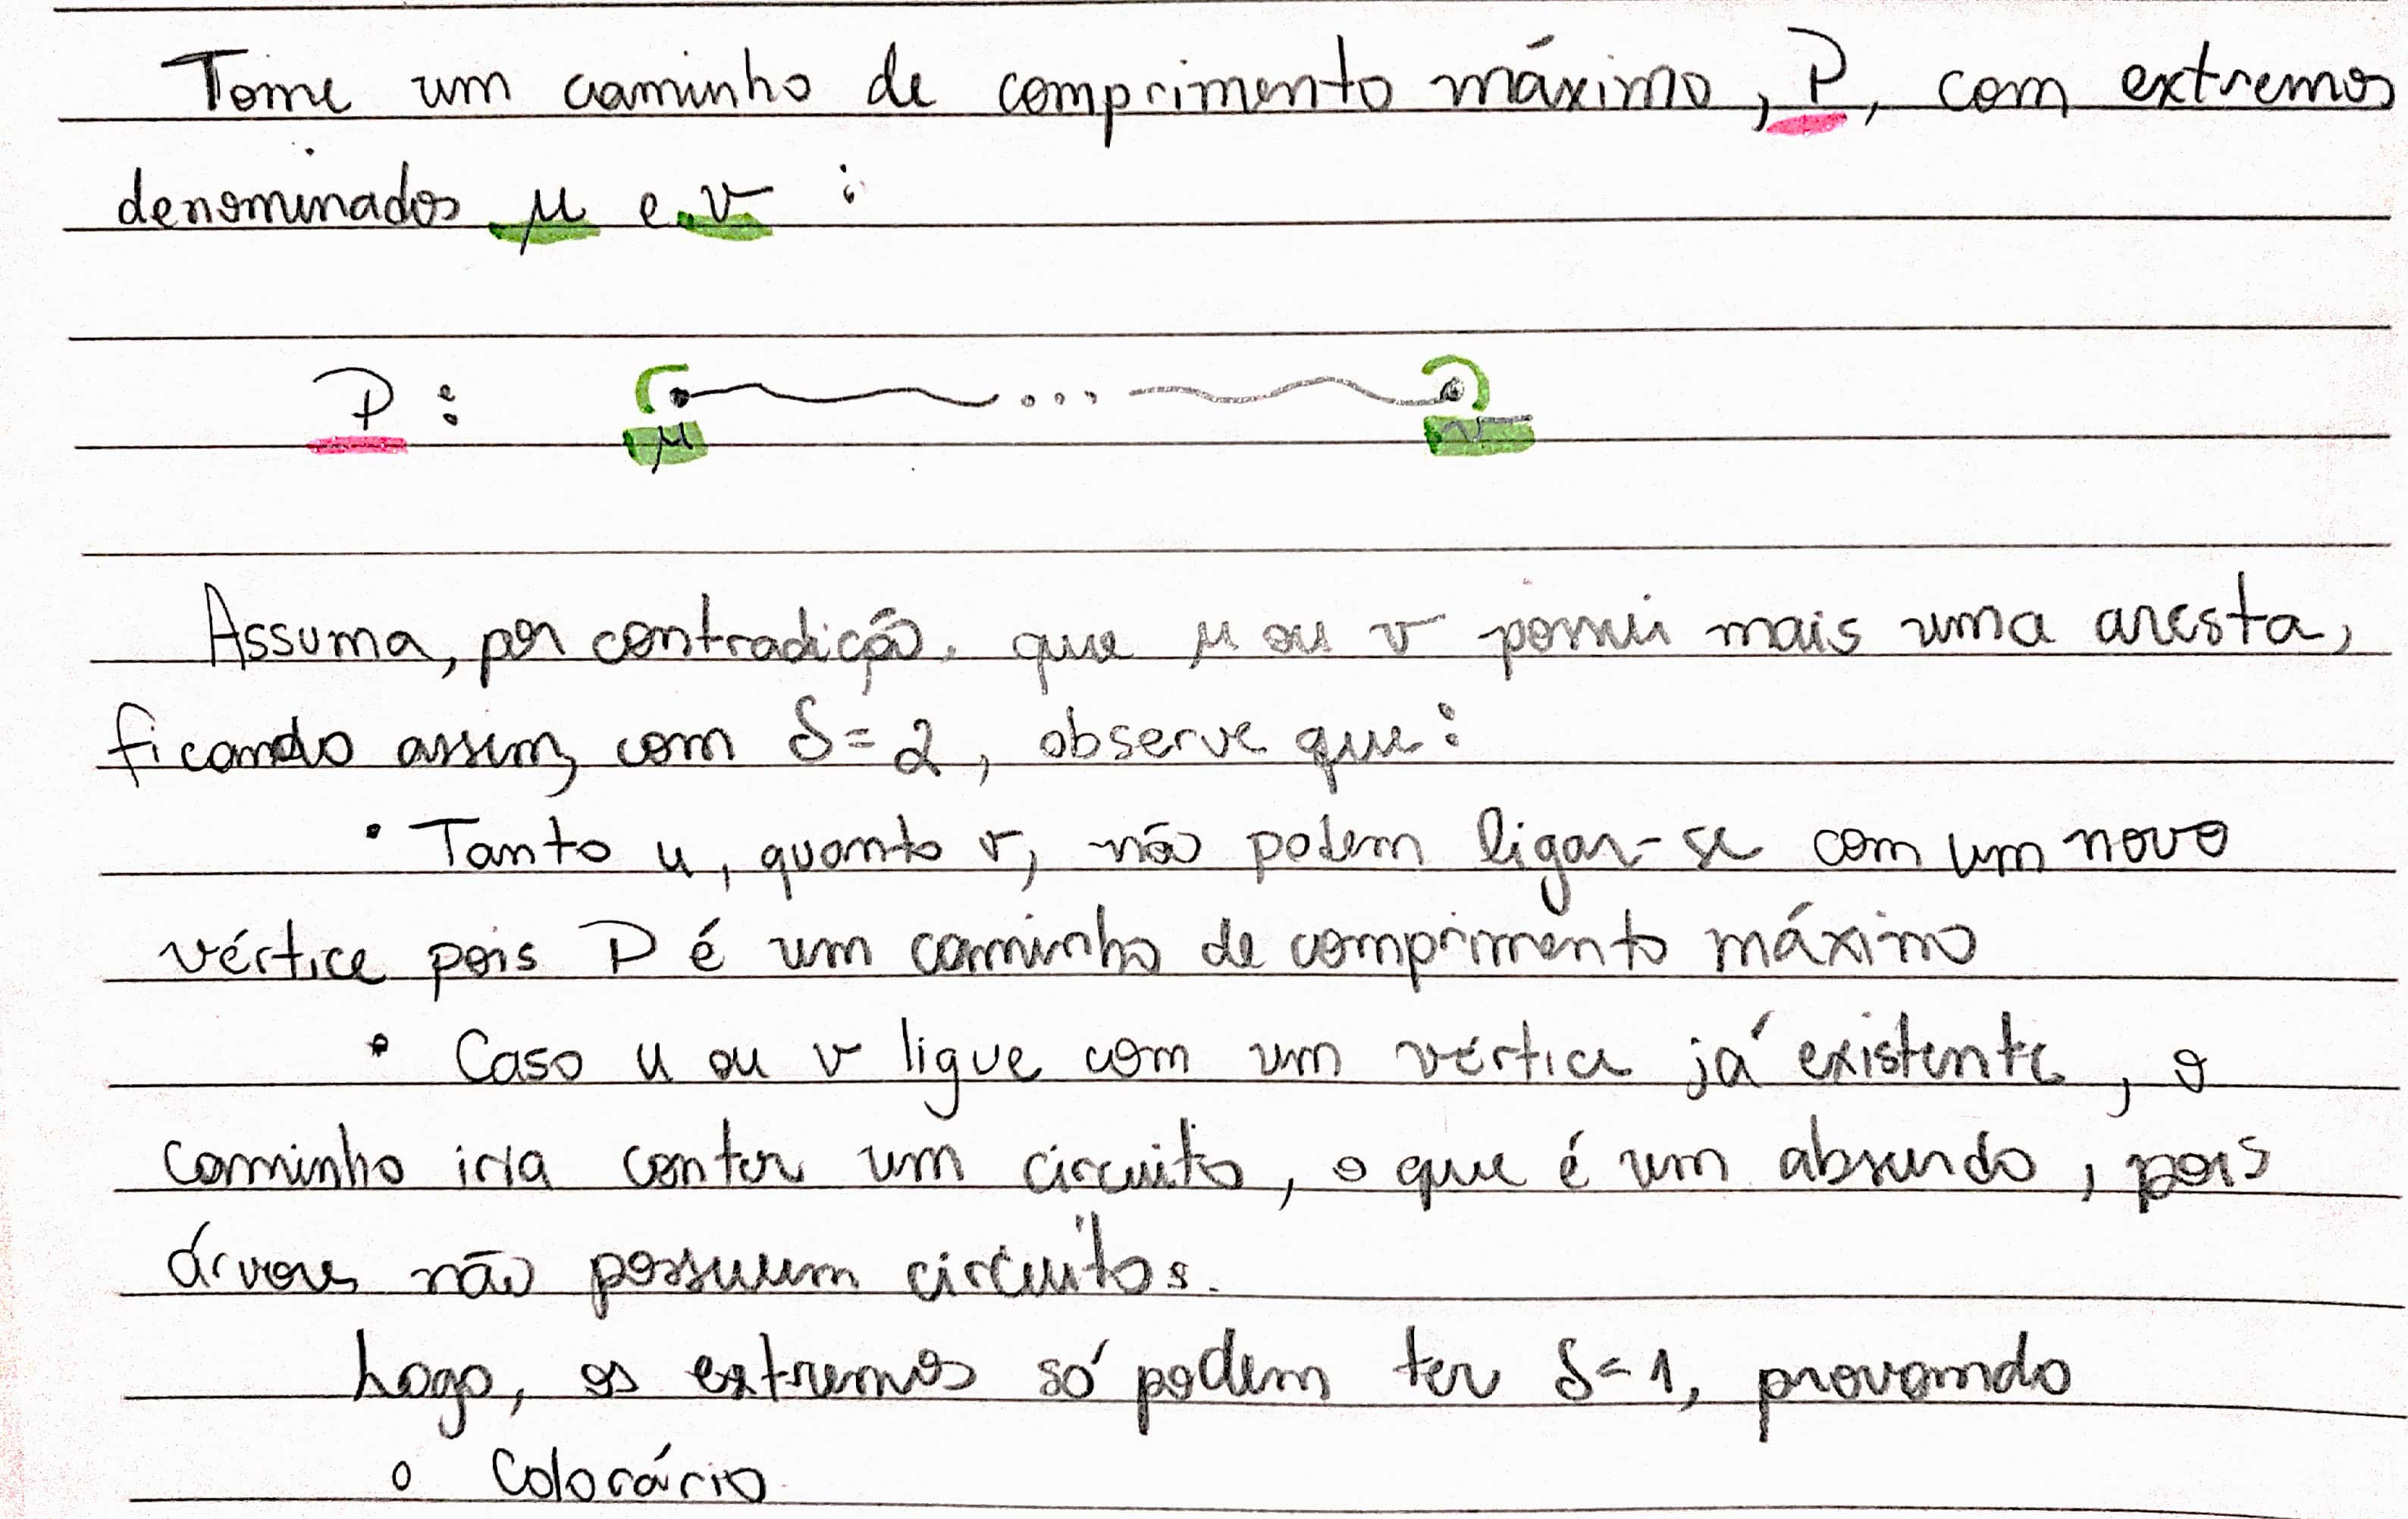 Tome um caminho de comprimento máximo, P, com extremos
denominados μ e v :
P : ...
μ v
Assuma, por contradição, que μ ou v possui mais uma aresta,
ficando assim, com δ = 2, observe que:
• Tanto u, quanto v, não podem ligar-se com um novo
vértice pois P é um caminho de comprimento máximo
• Caso u ou v ligue com um vértice já existente, o
caminho iria conter um circuito, o que é um absurdo, pois
árvores não possuem circuitos.
Logo, os extremos só podem ter δ = 1, provando
o Colorário